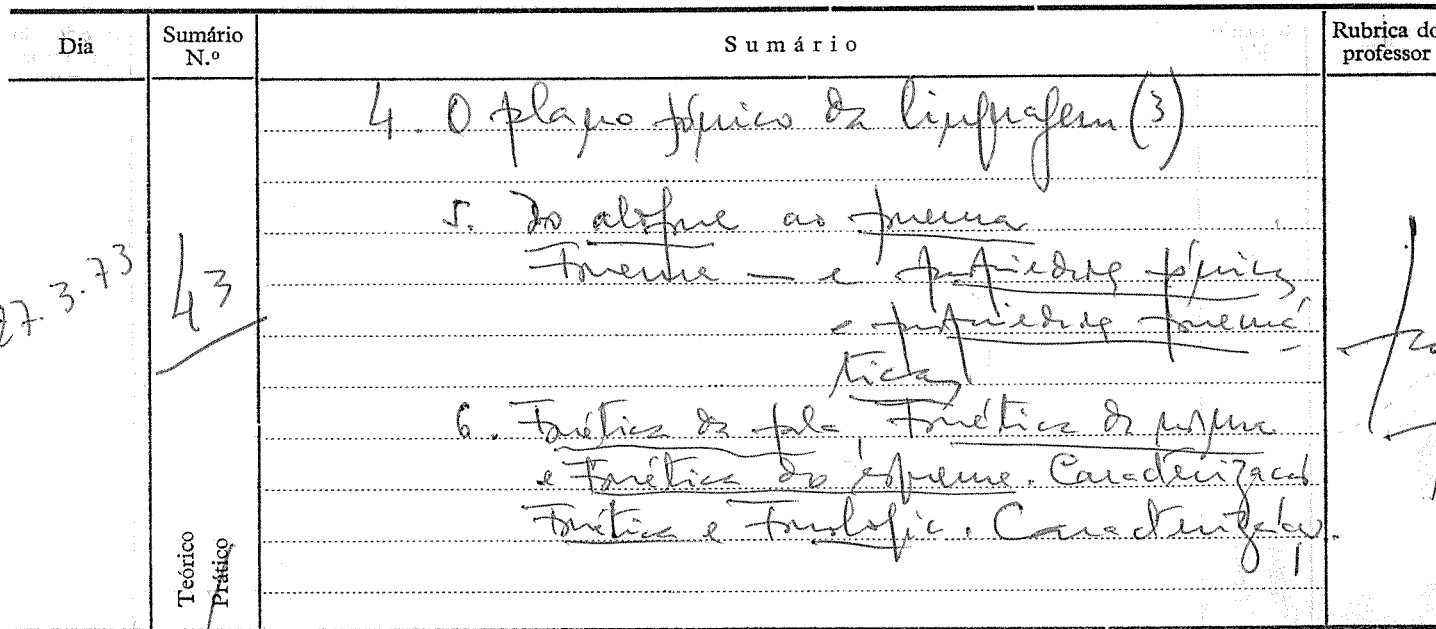 Dia
Sumário N.º
Sumário
Rubrica do professor
27.3.73
43
Teórico
Prático
4. O plano fónico da linguagem (3)
5. Do alofone ao fonema
Fonema — e propriedades fónicas
e propriedades fonemá-
ticas
6. Fonética da fala Fonética da norma
e Fonética do sistema. Caracterização
Fonética e Fonologia. Caracterização.